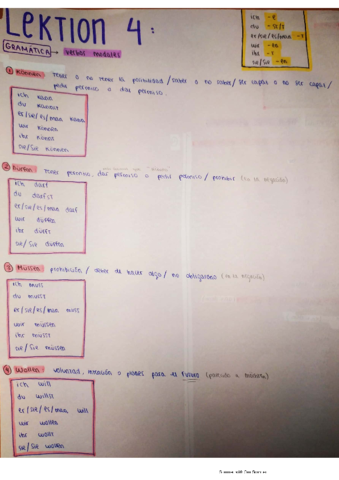 LEKTION 4:
ich -e
du -st/t
er/sie/es/man -t
wir -en
ihr -t
sie/Sie -en
GRAMÁTICA → Verbos modales
1 Können: tener o no tener la posibilidad / saber o no saber / ser capaz o no ser capaz /
pedir permiso o dar permiso.
ich kann
du kannst
er/sie/es/man kann
wir können
ihr könnt
sie/Sie können
2 Dürfen: tener permiso, dar permiso o pedir permiso / prohibir (en la negación)
ich darf
du darfst
er/sie/es/man darf
wir dürfen
ihr dürft
sie/Sie dürfen
3 Müssen: prohibición / deber de hacer algo / no obligatorio (en la negación)
ich muss
du musst
er/sie/es/man muss
wir müssen
ihr müsst
sie/Sie müssen
4 Wollen: voluntad, intención o planes para el
ich will
du willst
er/sie/es/man will
wir wollen
ihr wollt
sie/Sie wollen